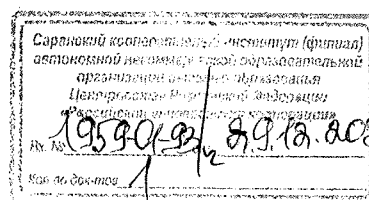 Саранский кооперативный институт (филиал)
автономной некоммерческой образовательной
организации высшего образования
Центросоюза Российской Федерации
«Российский университет кооперации»
Вх. № 1959-01-93/ 29.12.20
Кол-во док-тов 1